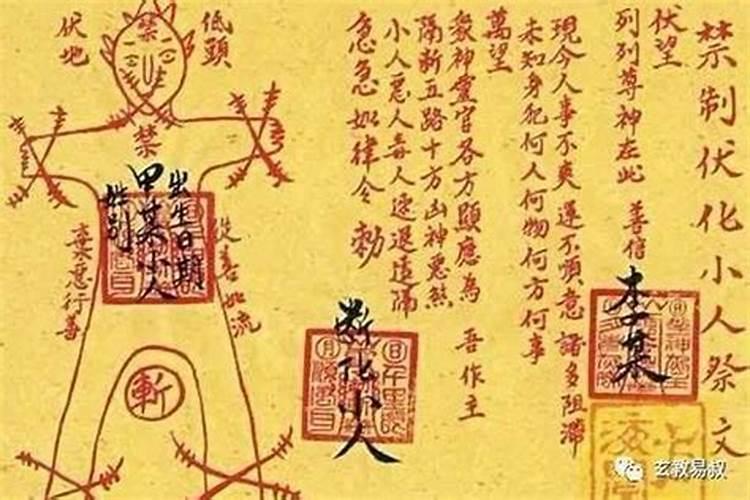 禁制伏化小人祭文
伏望
列列尊神在此 善信 李某
現今人事不爽 運不順意 諸多阻滯
未知身犯何人何物何方何事
萬望
眾神靈官各方顯應為 吾作主
隔斷五路十方凶神惡煞
小人惡人毒人速退遠隔
急急如律令 勅
斷化小人
低頭
伏地
禁
禁
出生日期
甲某小人
姓別
從善如流
棄惡行善
斬
玄教易叔